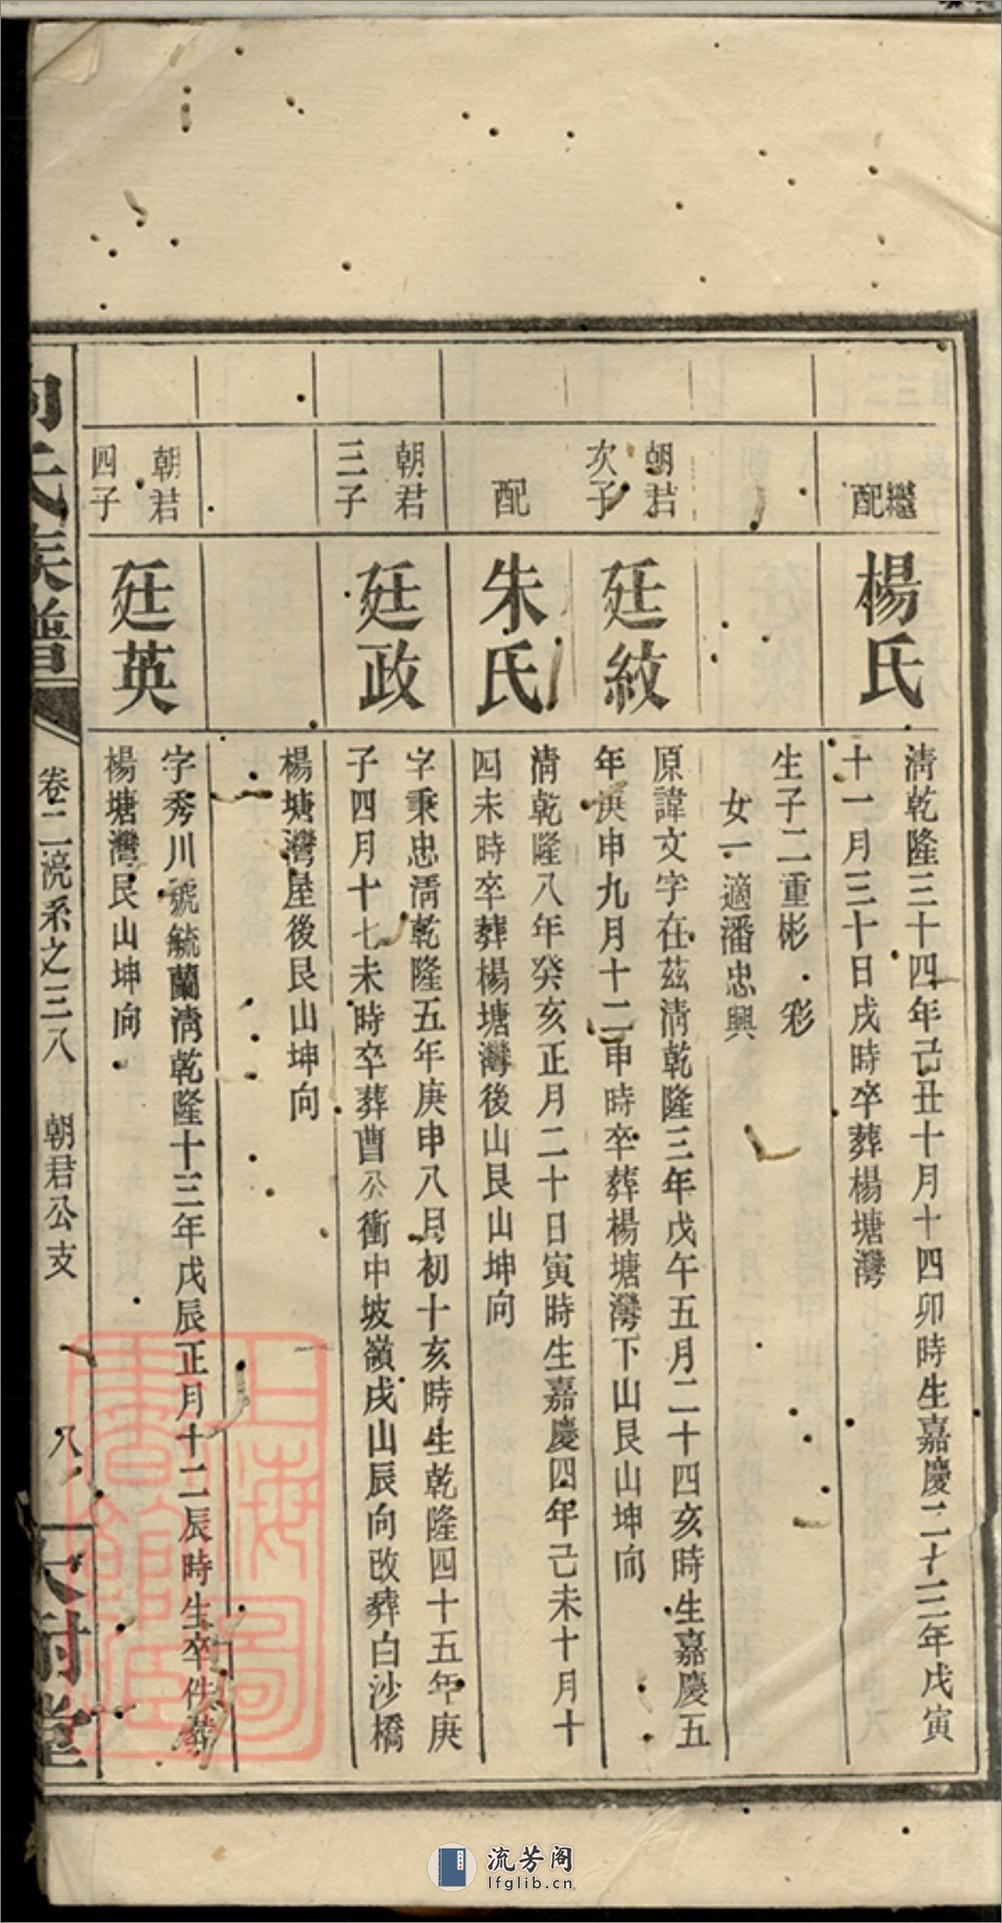 繼配
楊氏
清乾隆三十四年己丑十月十四卯時生嘉慶二十三年戊寅
十一月三十日戌時卒葬楊塘灣
生子二重彬 彩
女一適潘忠興
朝君次子
廷紋
原諱文字在茲清乾隆三年戊午五月二十四亥時生嘉慶五
年庚申九月十二申時卒葬楊塘灣下山艮山坤向
配
朱氏
清乾隆八年癸亥正月二十日寅時生嘉慶四年己未十月十
四未時卒葬楊塘灣後山艮山坤向
朝君三子
廷政
字秉忠清乾隆五年庚申八月初十亥時生乾隆四十五年庚
子四月十七未時卒葬曹公衝中坡嶺戌山辰向改葬白沙橋
楊塘灣屋後艮山坤向
朝君四子
廷英
字秀川號毓蘭清乾隆十三年戊辰正月十二辰時生卒佚葬
楊塘灣艮山坤向
氏族譜
卷二浣系之三八 朝君公支
八
耐堂
上海圖書館藏
流芳阁
lfglib.cn